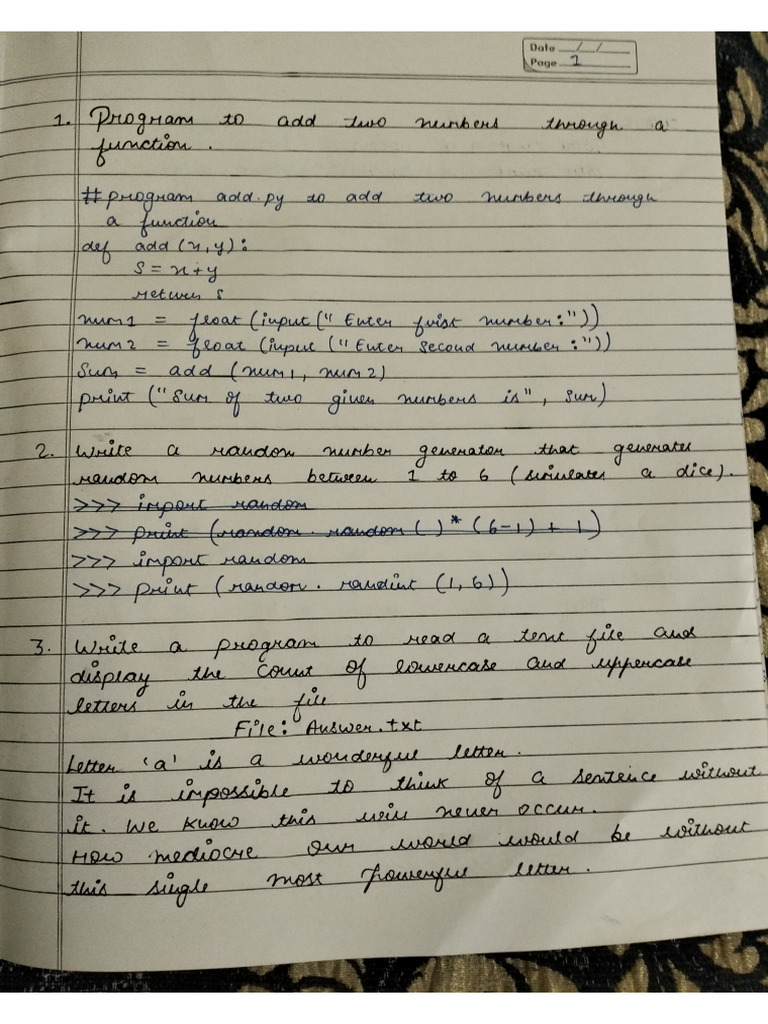 Date / /
Page 1
1. Program to add two numbers through a
function.
# program add.py to add two numbers through
a function
def add (x,y):
S = x+y
return s
num1 = float (input (" Enter first number:"))
num2 = float (input (" Enter second number :"))
Sum = add (num1, num2)
print ("Sum of two given numbers is", sum)
2. Write a random number generator that generates
random numbers between 1 to 6 (simulates a dice).
>>> import random
>>> print (random. random ( ) * (6-1) + 1)
>>> import random
>>> print (random. randint (1,6))
3. Write a program to read a text file and
display the count of lowercase and uppercase
letters in the file
File: Answer.txt
Letter 'a' is a wonderful letter.
It is impossible to think of a sentence without
it. We know this will never occur.
How mediocre our world would be without
this single most powerful letter.